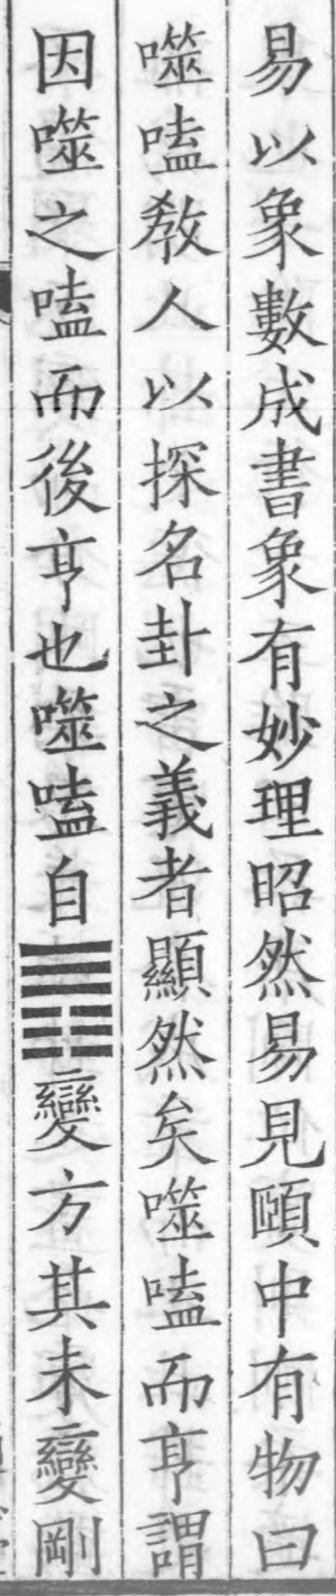 易以象數成書象有妙理昭然易見頤中有物曰
噬嗑敎人以探名卦之義者顯然矣噬嗑而亨謂
因噬之嗑而後亨也噬嗑自䷋變方其未變剛